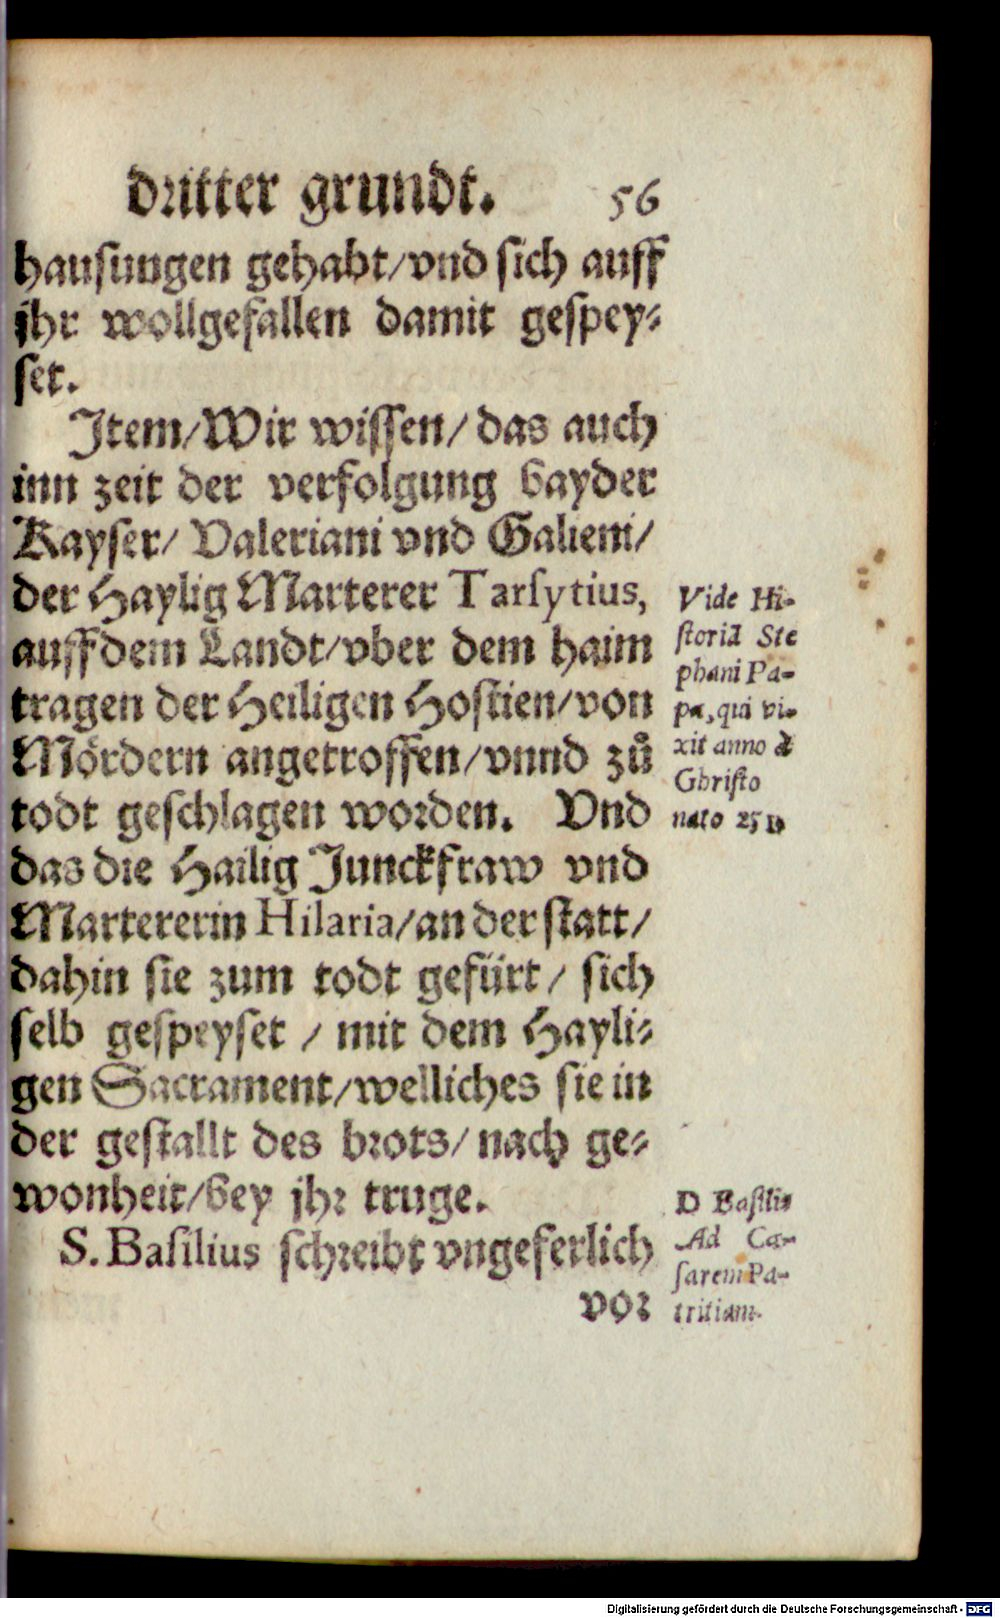 dritter grundt. 56
hausungen gehabt/vnd sich auff
jhr wollgefallen damit gespey-
set.
Item/Wir wissen/das auch
inn zeit der verfolgung bayder
Kayser/Valeriani vnd Galieni/
der Haylig Marterer Tarsytius,
auff dem Landt/vber dem haim
tragen der Heiligen Hostien/von
Mördern angetroffen/vnnd zů
todt geschlagen worden. Vnd
das die Hailig Junckfraw vnd
Martererin Hilaria/an der statt/
dahin sie zum todt gefürt/sich
selb gespeyset/mit dem Hayli-
gen Sacrament/welliches sie in
der gestallt des brots/nach ge-
wonheit/bey jhr truge.
S. Basilius schreibt vngeferlich
vor
Vide Hi-
storiā Ste
phani Pa-
pa, qui vi-
xit anno à
Christo
nato
D Basili9
Ad Cæ-
saremPa-
tritiam.
Digitalisierung gefördert durch die Deutsche Forschungsgemeinschaft - DFG